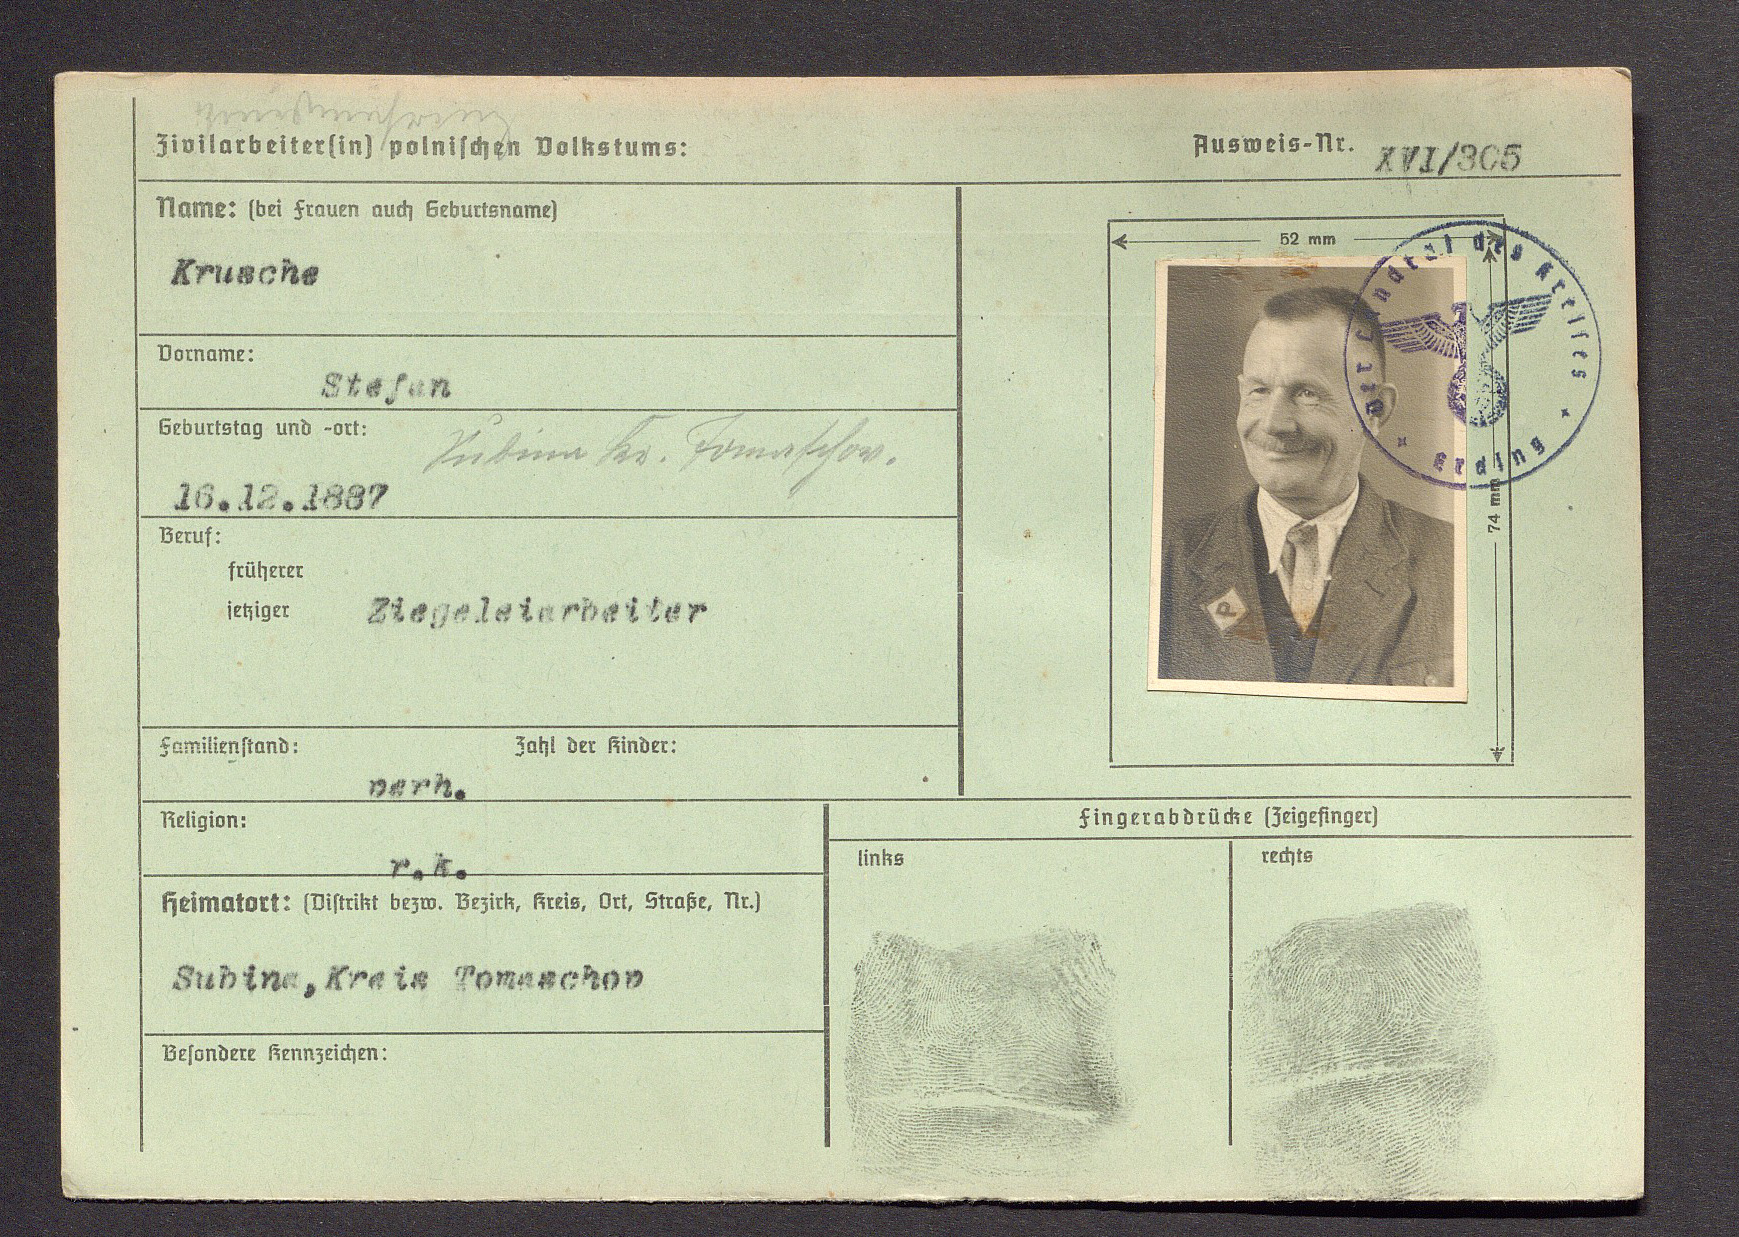 Zivilarbeiter(in) polnischen Volkstums:
Ausweis-Nr. XVI/305
Name: (bei Frauen auch Geburtsname)
Krusche
Vorname:
Stefan
Geburtstag und -ort:
Subina Kr. Tomaschow.
16.12.1887
Beruf:
früherer
jetziger Ziegeleiarbeiter
Familienstand: Zahl der Kinder:
verh.
Religion:
r.k.
Heimatort: (Distrikt bezw. Bezirk, Kreis, Ort, Straße, Nr.)
Subina, Kreis Tomaschow
Besondere Kennzeichen:
52 mm
74 mm
Der Landrat des Kreises
Erding
P
Fingerabdrücke (Zeigefinger)
links
rechts